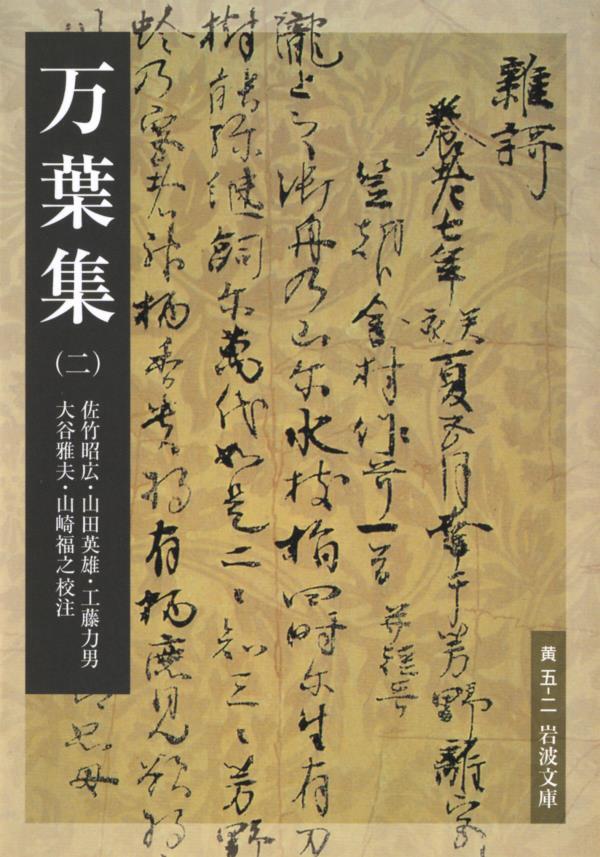 万葉集
(二)
佐竹昭広・山田英雄・工藤力男
大谷雅夫・山崎福之校注
雜謌
養老七年癸亥夏五月幸于芳野離宮
笠朝臣金村作哥一首 并短哥
瀧上之御舟乃山尓水枝指四時尓生有刀
樹能弥継飼尓萬代如是二ゝ知三ゝ芳野
蛉乃宮者神柄香貴将有柄鹿見欲将
黄 五-二 岩波文庫